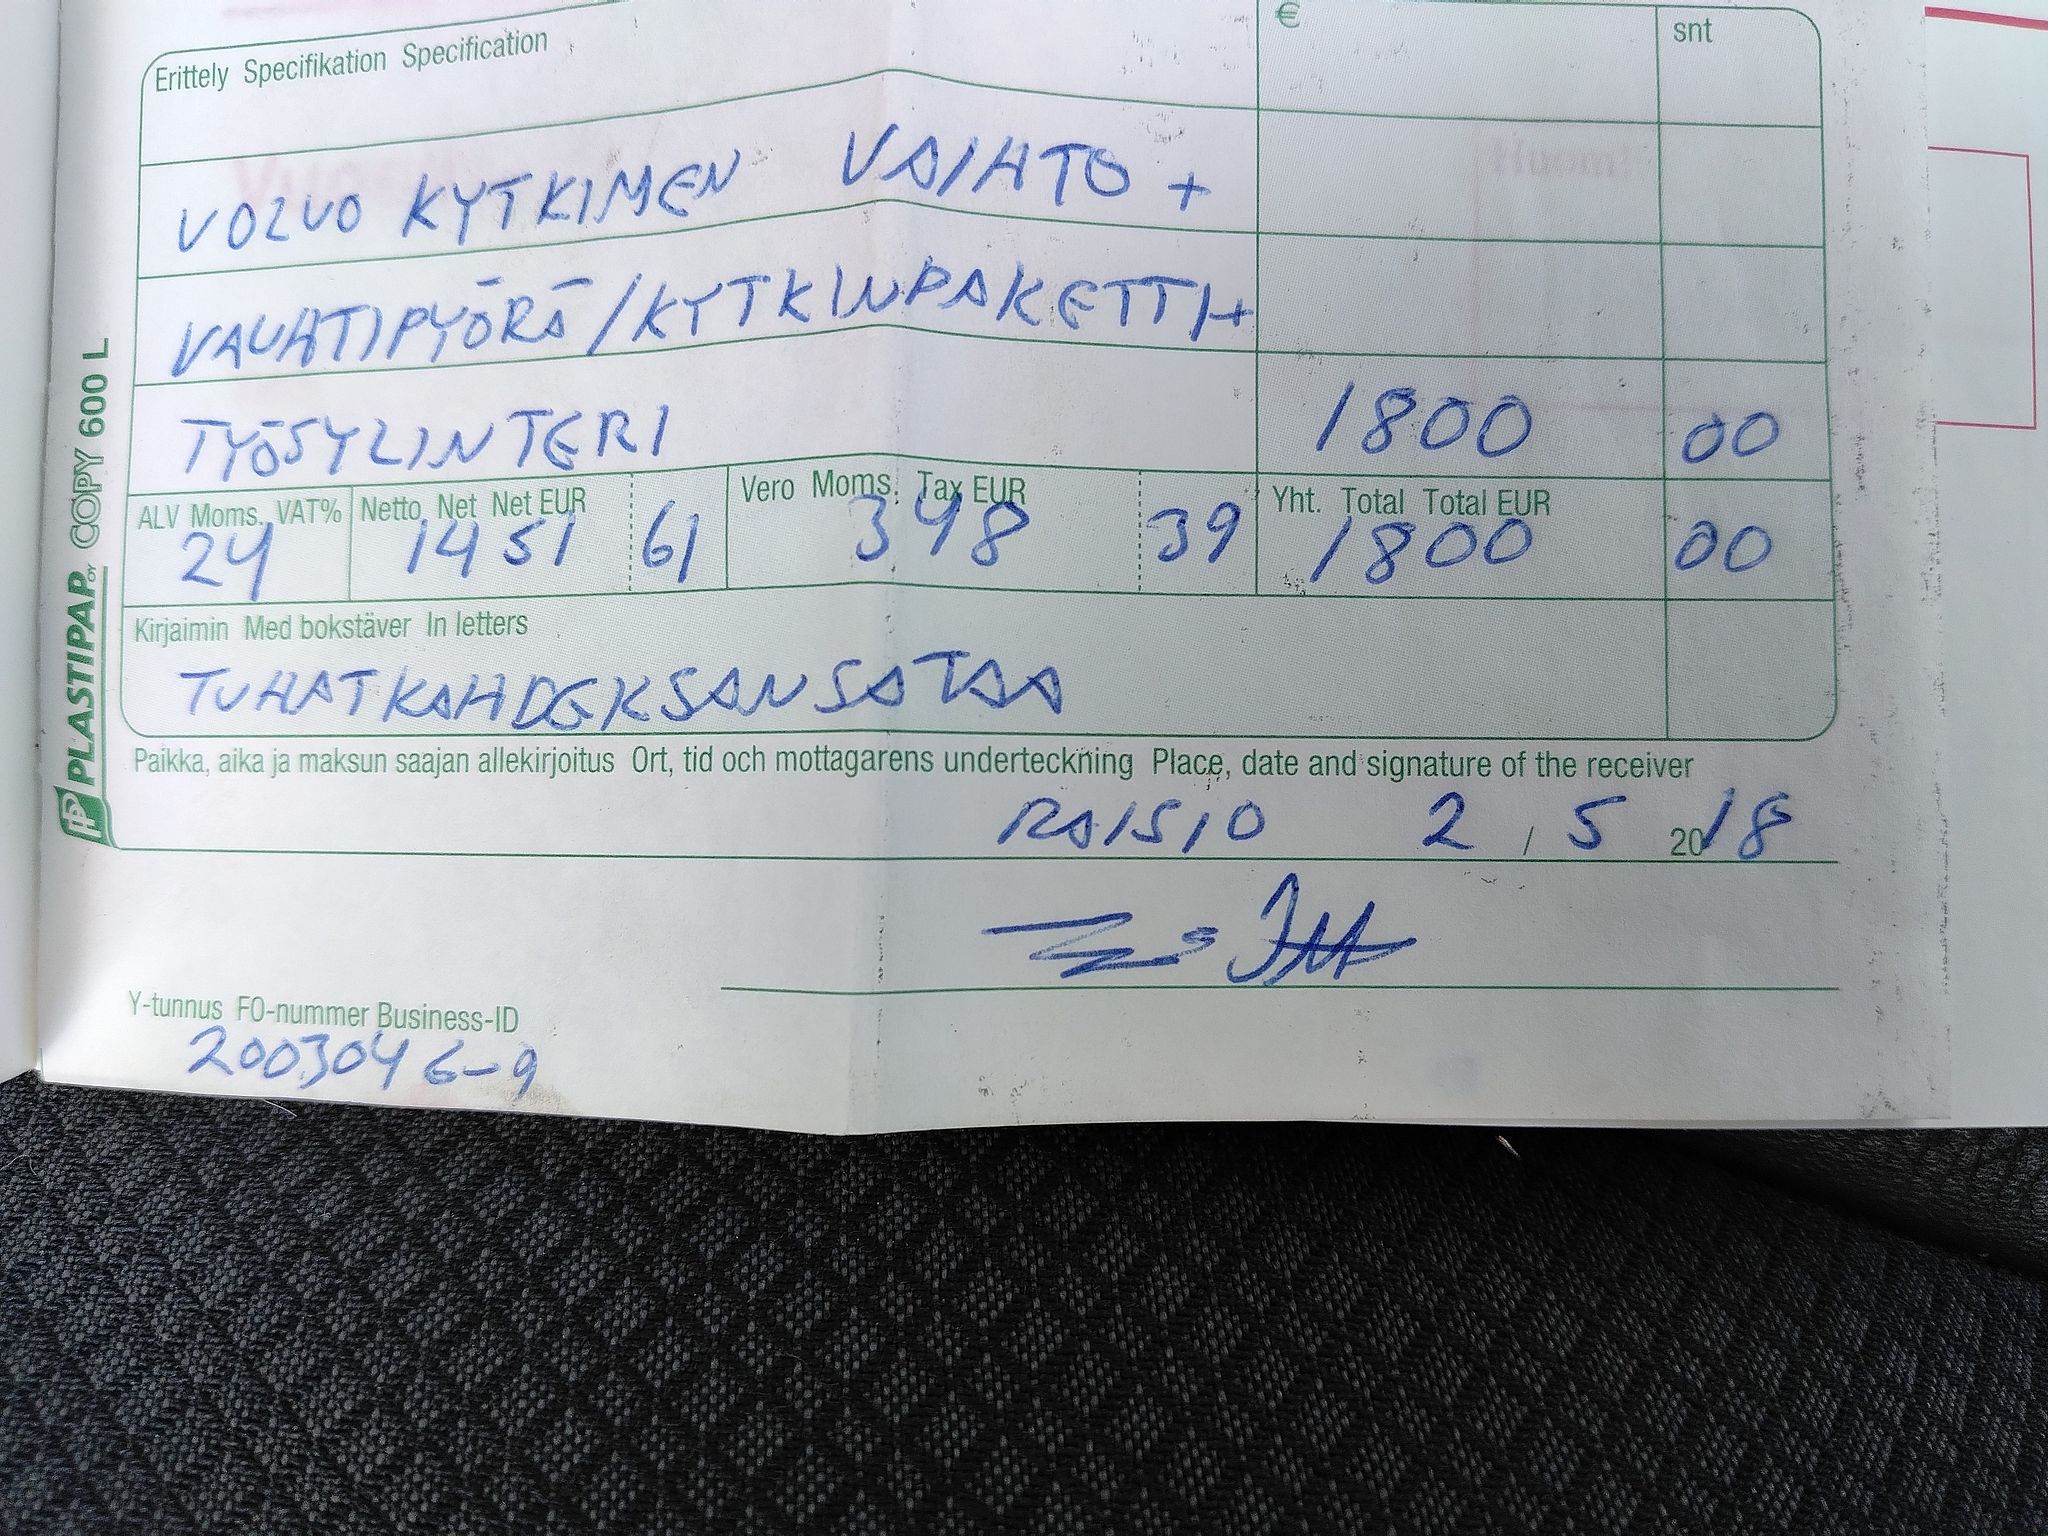 Erittely Specifikation Specification € snt
VOLVO KYTKIMEN VAIHTO +
VAUHTIPYÖRÄ/KYTKINPAKETTI+
TYÖSYLINTERI 1800 00
ALV Moms. VAT% Netto Net Net EUR Vero Moms. Tax EUR Yht. Total Total EUR
24 1451 61 348 39 1800 00
Kirjaimin Med bokstäver In letters
TUHATKAHDEKSANSATAA
Paikka, aika ja maksun saajan allekirjoitus Ort, tid och mottagarens underteckning Place, date and signature of the receiver
RAISIO 2 / 5 2018
Y-tunnus FO-nummer Business-ID
2003046-9
PLASTIPAP OY COPY 600 L
Huom!